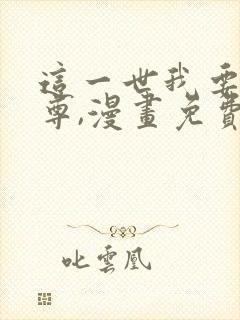 這一世我要
尊,漫畫免費
叱雲凰